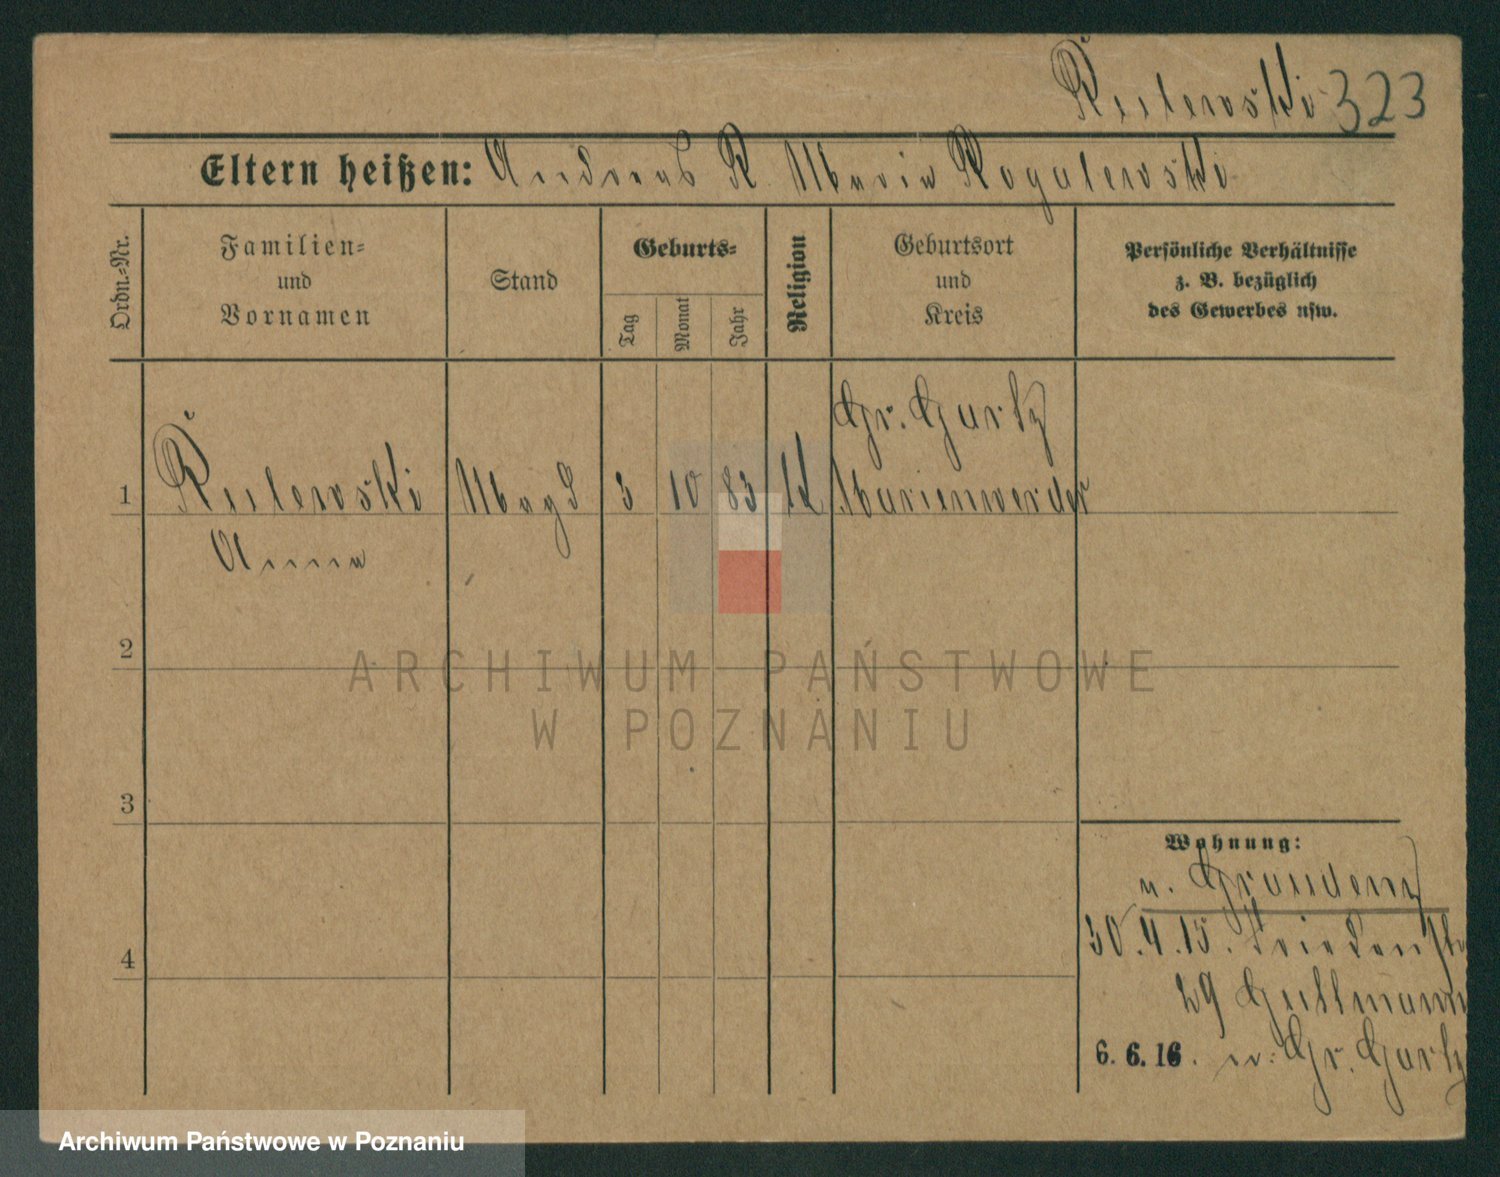 Rulewski 323
Eltern heißen: Andreas R. Maria Rogalewski
Ordn.-Nr.
Familien-
und
Vornamen
Stand
Geburts-
Tag
Monat
Jahr
Religion
Geburtsort
und
Kreis
Persönliche Verhältnisse
z. B. bezüglich
des Gewerbes usw.
Gr. Gartz
1 Rulewski Magd 3 10 83 K Marienwerder
Anna
2
3
4
Wohnung:
v. Graudenz
30.4.15. Friedenstr
29 Gullmann
6.6.16. n. Gr. Gartz
ARCHIWUM PAŃSTWOWE
W POZNANIU
Archiwum Państwowe w Poznaniu